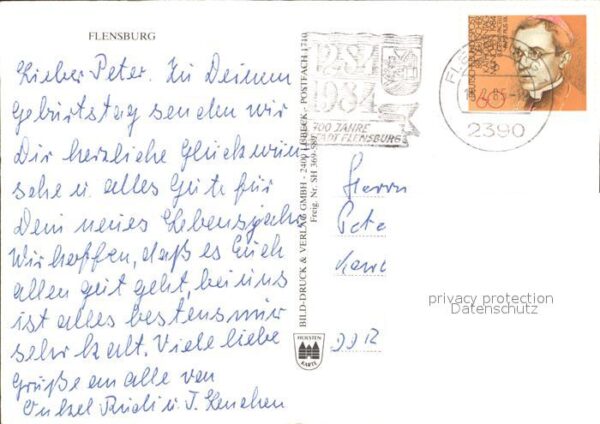 FLENSBURG
Lieber Peter. Zu Deinem
Geburtstag senden wir
Dir herzliche Glückwün
sche u. alles Gute für
Dein neues Lebensjahr
Wir hoffen, daß es Euch
allen gut geht, bei uns
ist alles bestens, nur
sehr kalt. Viele liebe
Grüße an alle von
Onkel Rudi u. T. Lenchen
BILD-DRUCK & VERLAG GMBH - 2400 LÜBECK - POSTFACH 1710
Freig. Nr. SH 369-580
HOLSTEN
KARTE
1284
1984
700 JAHRE
STADT FLENSBURG
2390
60
Herrn
Pete
privacy protection
Datenschutz